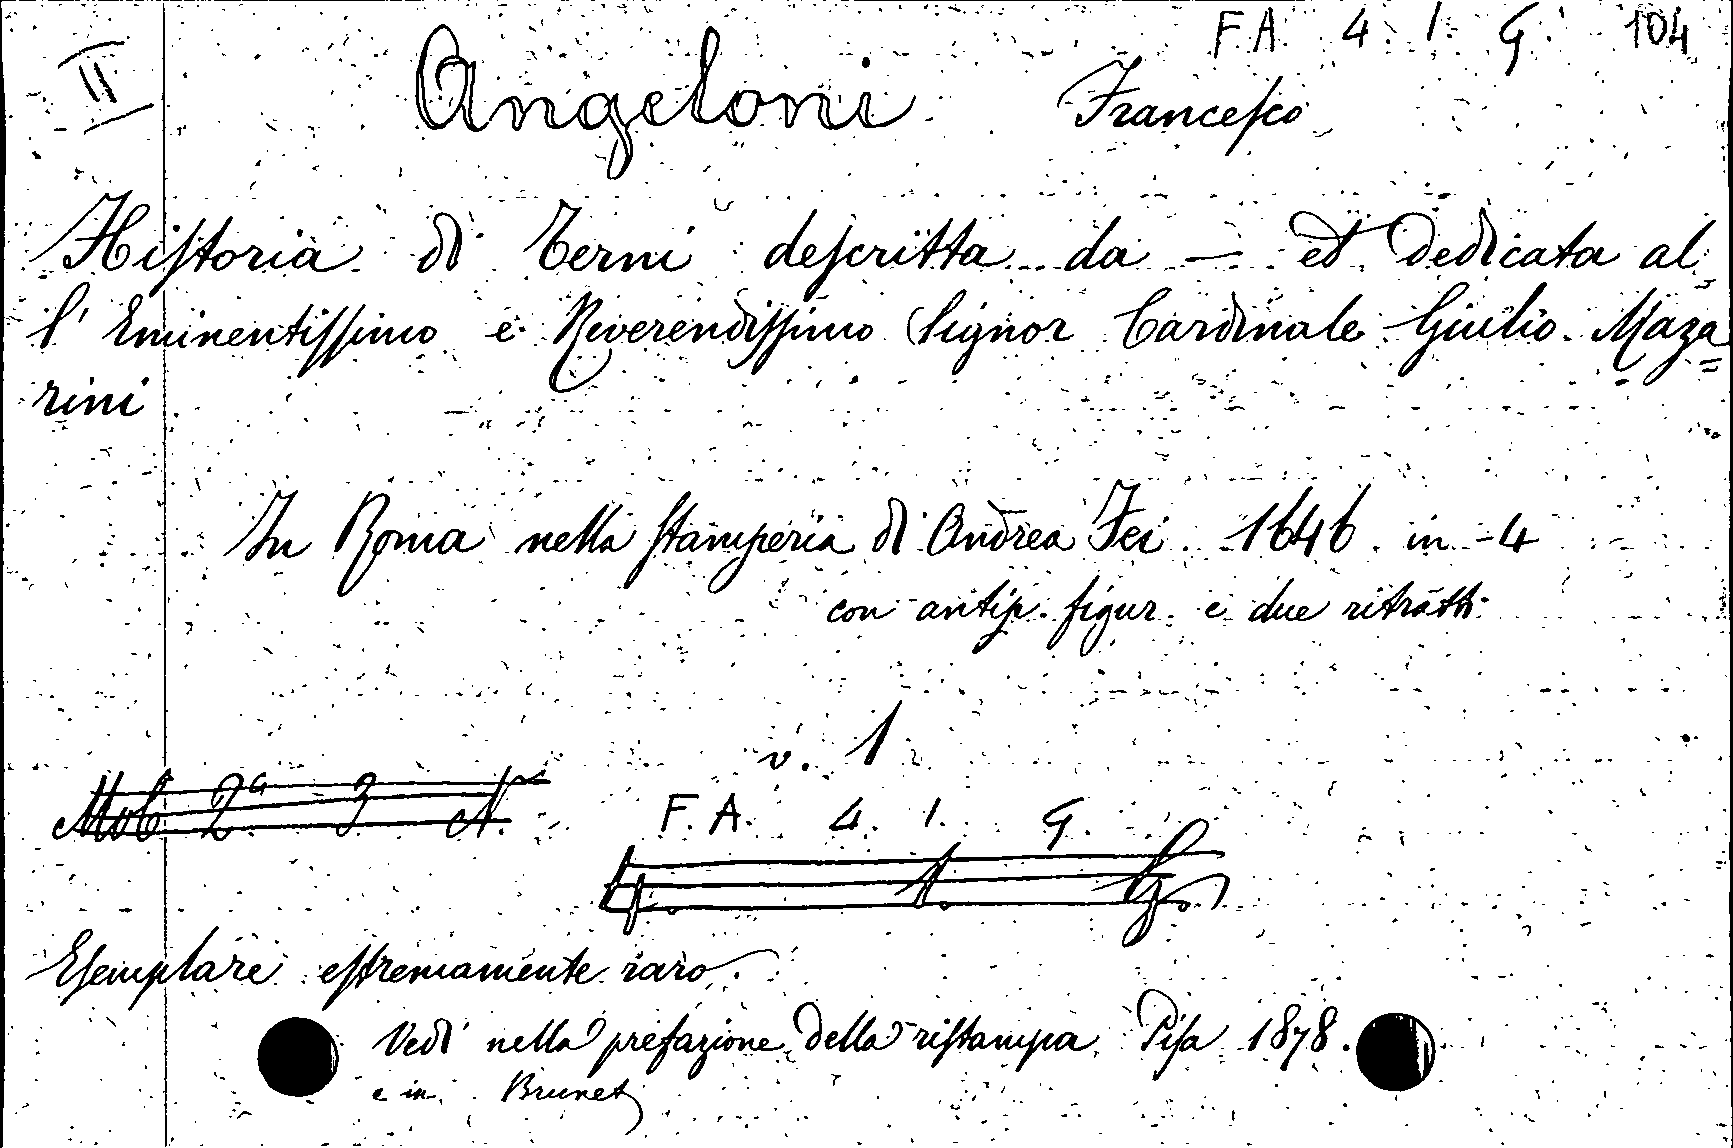 F A 4. 1. G. 104
II Angeloni Francesco
Historia di Terni descritta da — et dedicata al
l' Eminentissimo e Reverendissimo Signor Cardinale Giulio Maza=
rini
In Roma nella stamperia di Andrea Fei 1646 in 4
con antip. figur. e due ritratti
v. 1
Mob 2a 3 N. F. A. 4. 1. G.
4. 1. G.
Esemplare estremamente raro.
Vedi nella prefazione della ristampa Pisa 1878.
e in Brunet